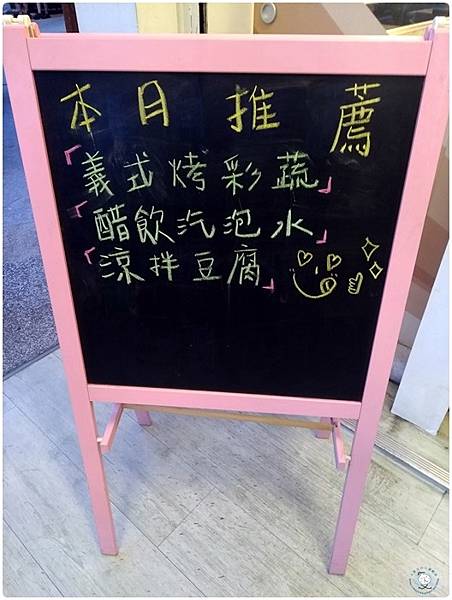 本月推薦
「義式烤彩蔬」
「醋飲汽泡水」
「涼拌豆腐」